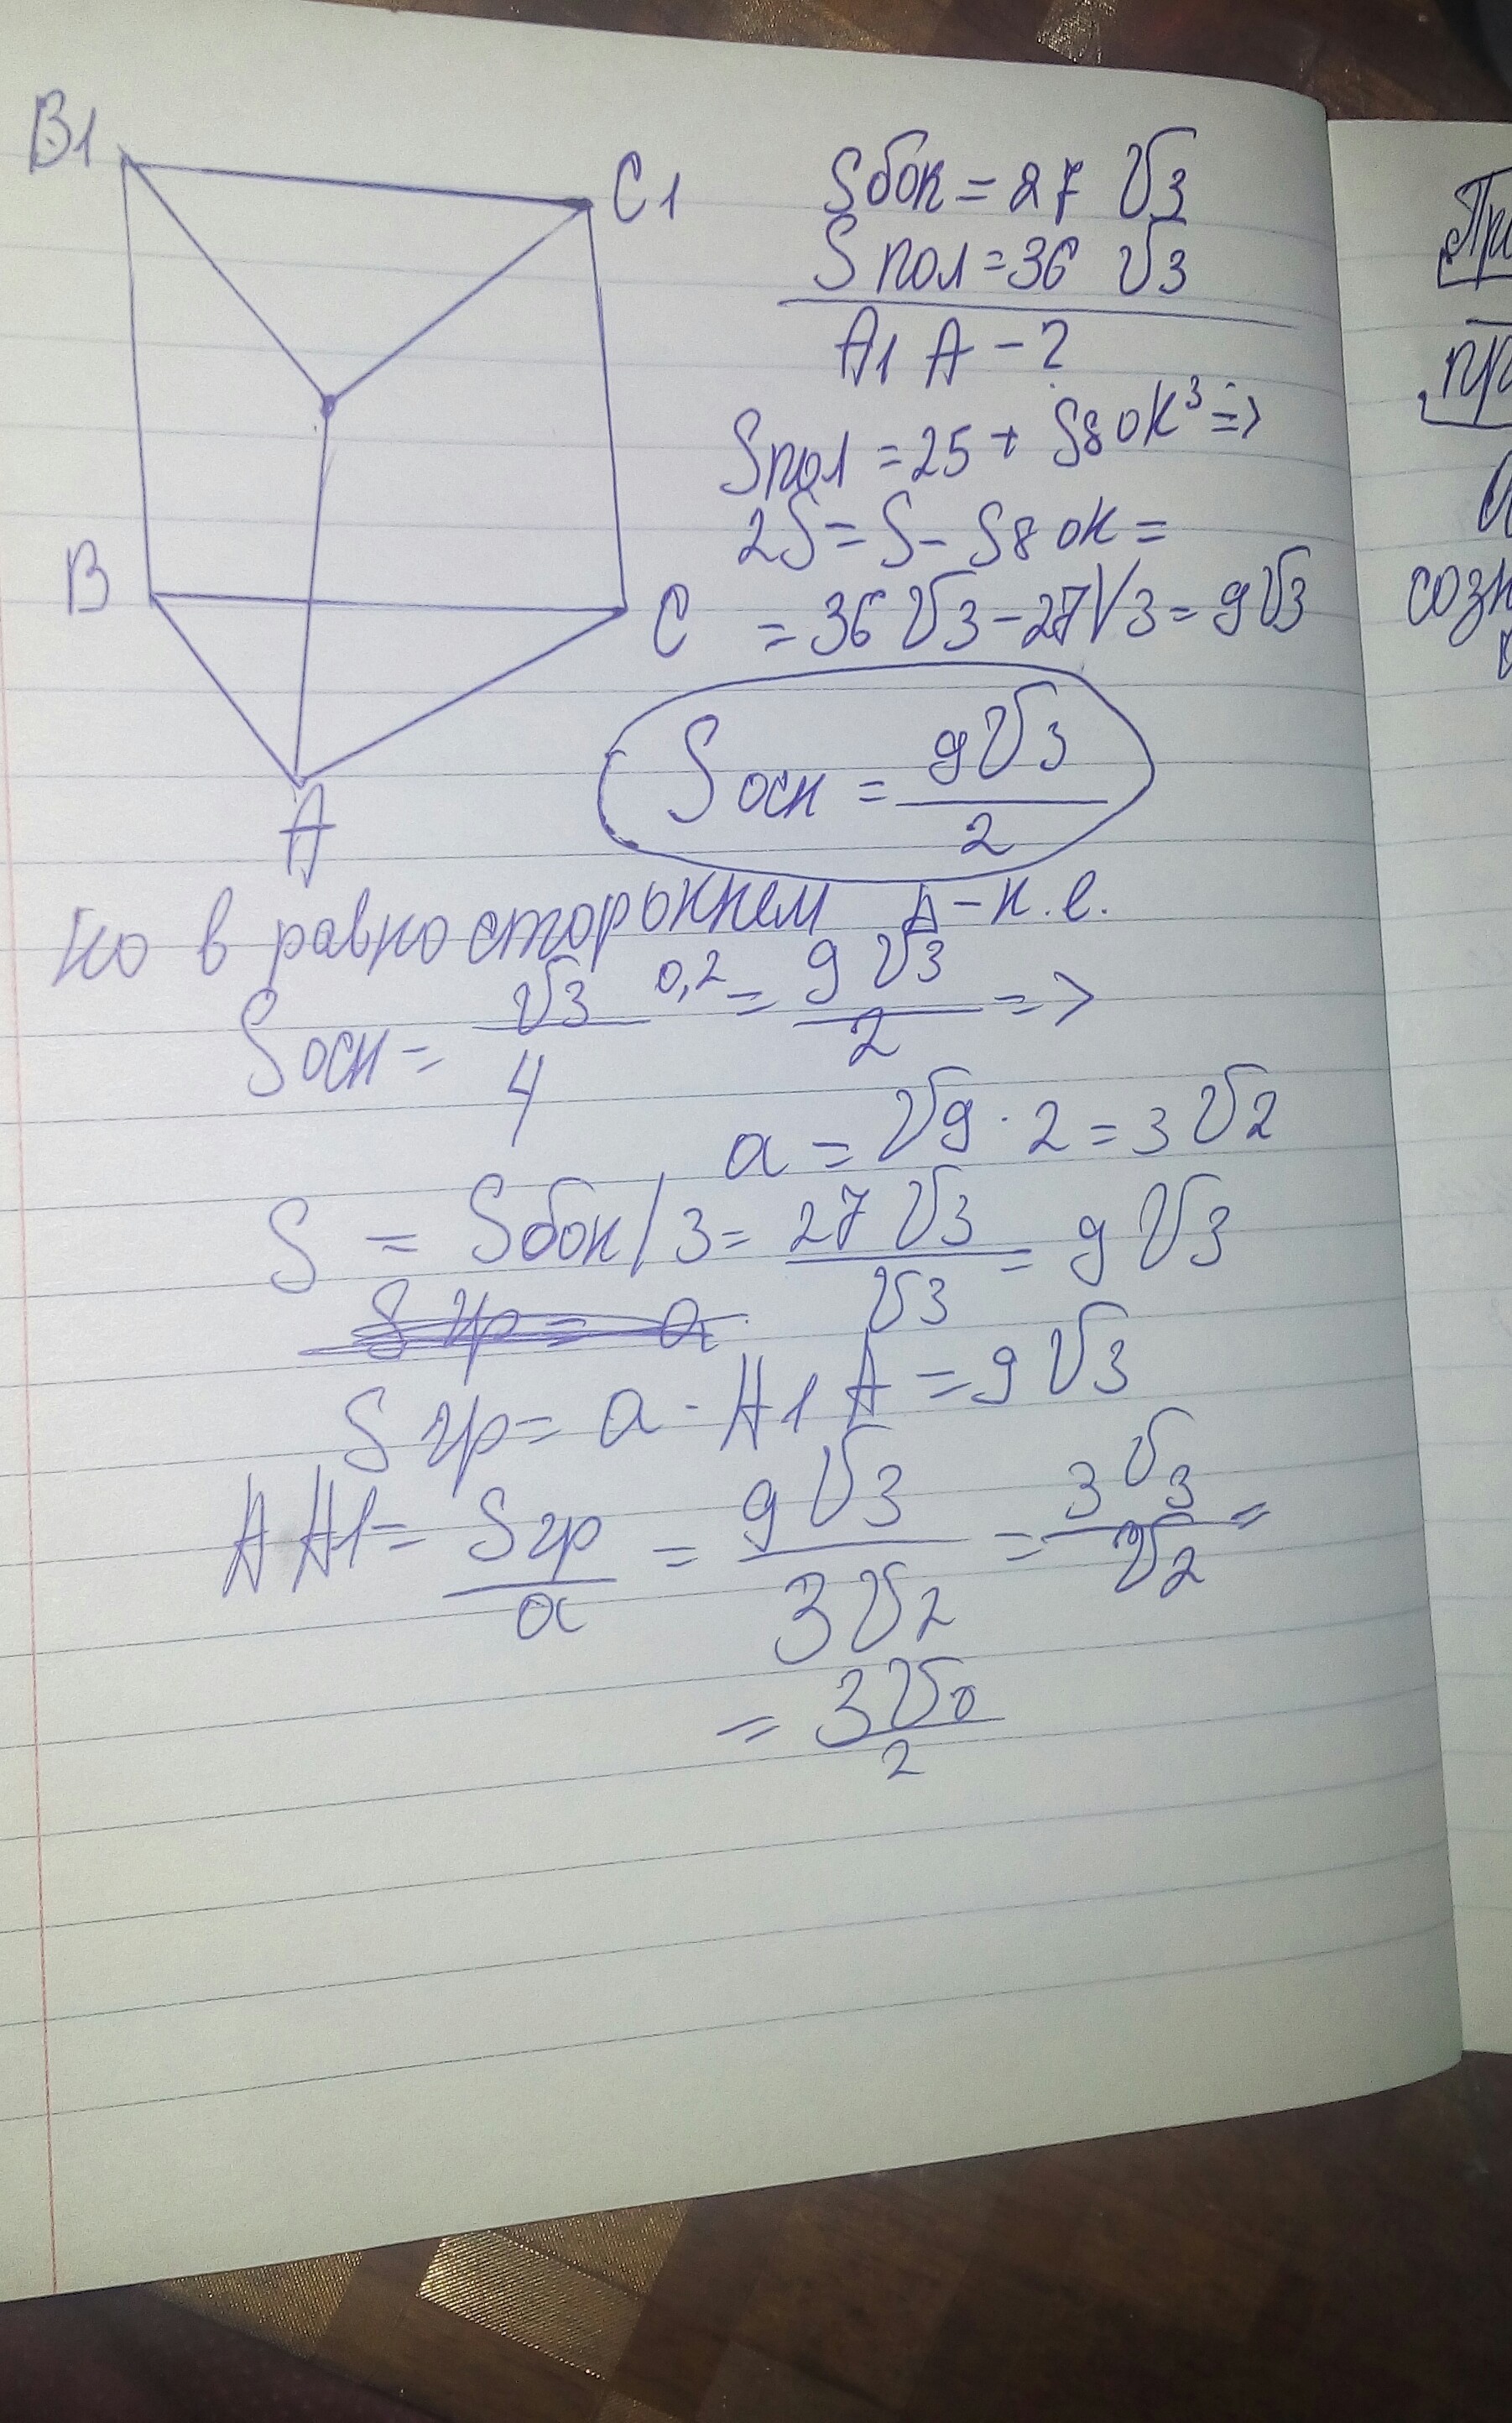 B1
C1
B
C
A
Sбок = 27 √3
S пол = 36 √3
A1 A - ?
Sпол = 25 + S8ок³ =>
2S = S - S8 ок =
= 36 √3 - 27√3 = 9√3
S осн = 9√3 / 2
но в равностороннем Δ-к.е.
S осн = √3 / 4 0,2 = 9 √3 / 2 =>
a = √9 · 2 = 3 √2
S = Sбок / 3 = 27 √3 / √3 = 9 √3
S гр = a
S гр = a · A1 A = 9 √3
A A1 = S гр / a = 9 √3 / 3 √2 = 3 √3 / √2 =
= 3 √0 / 2
пр
созн